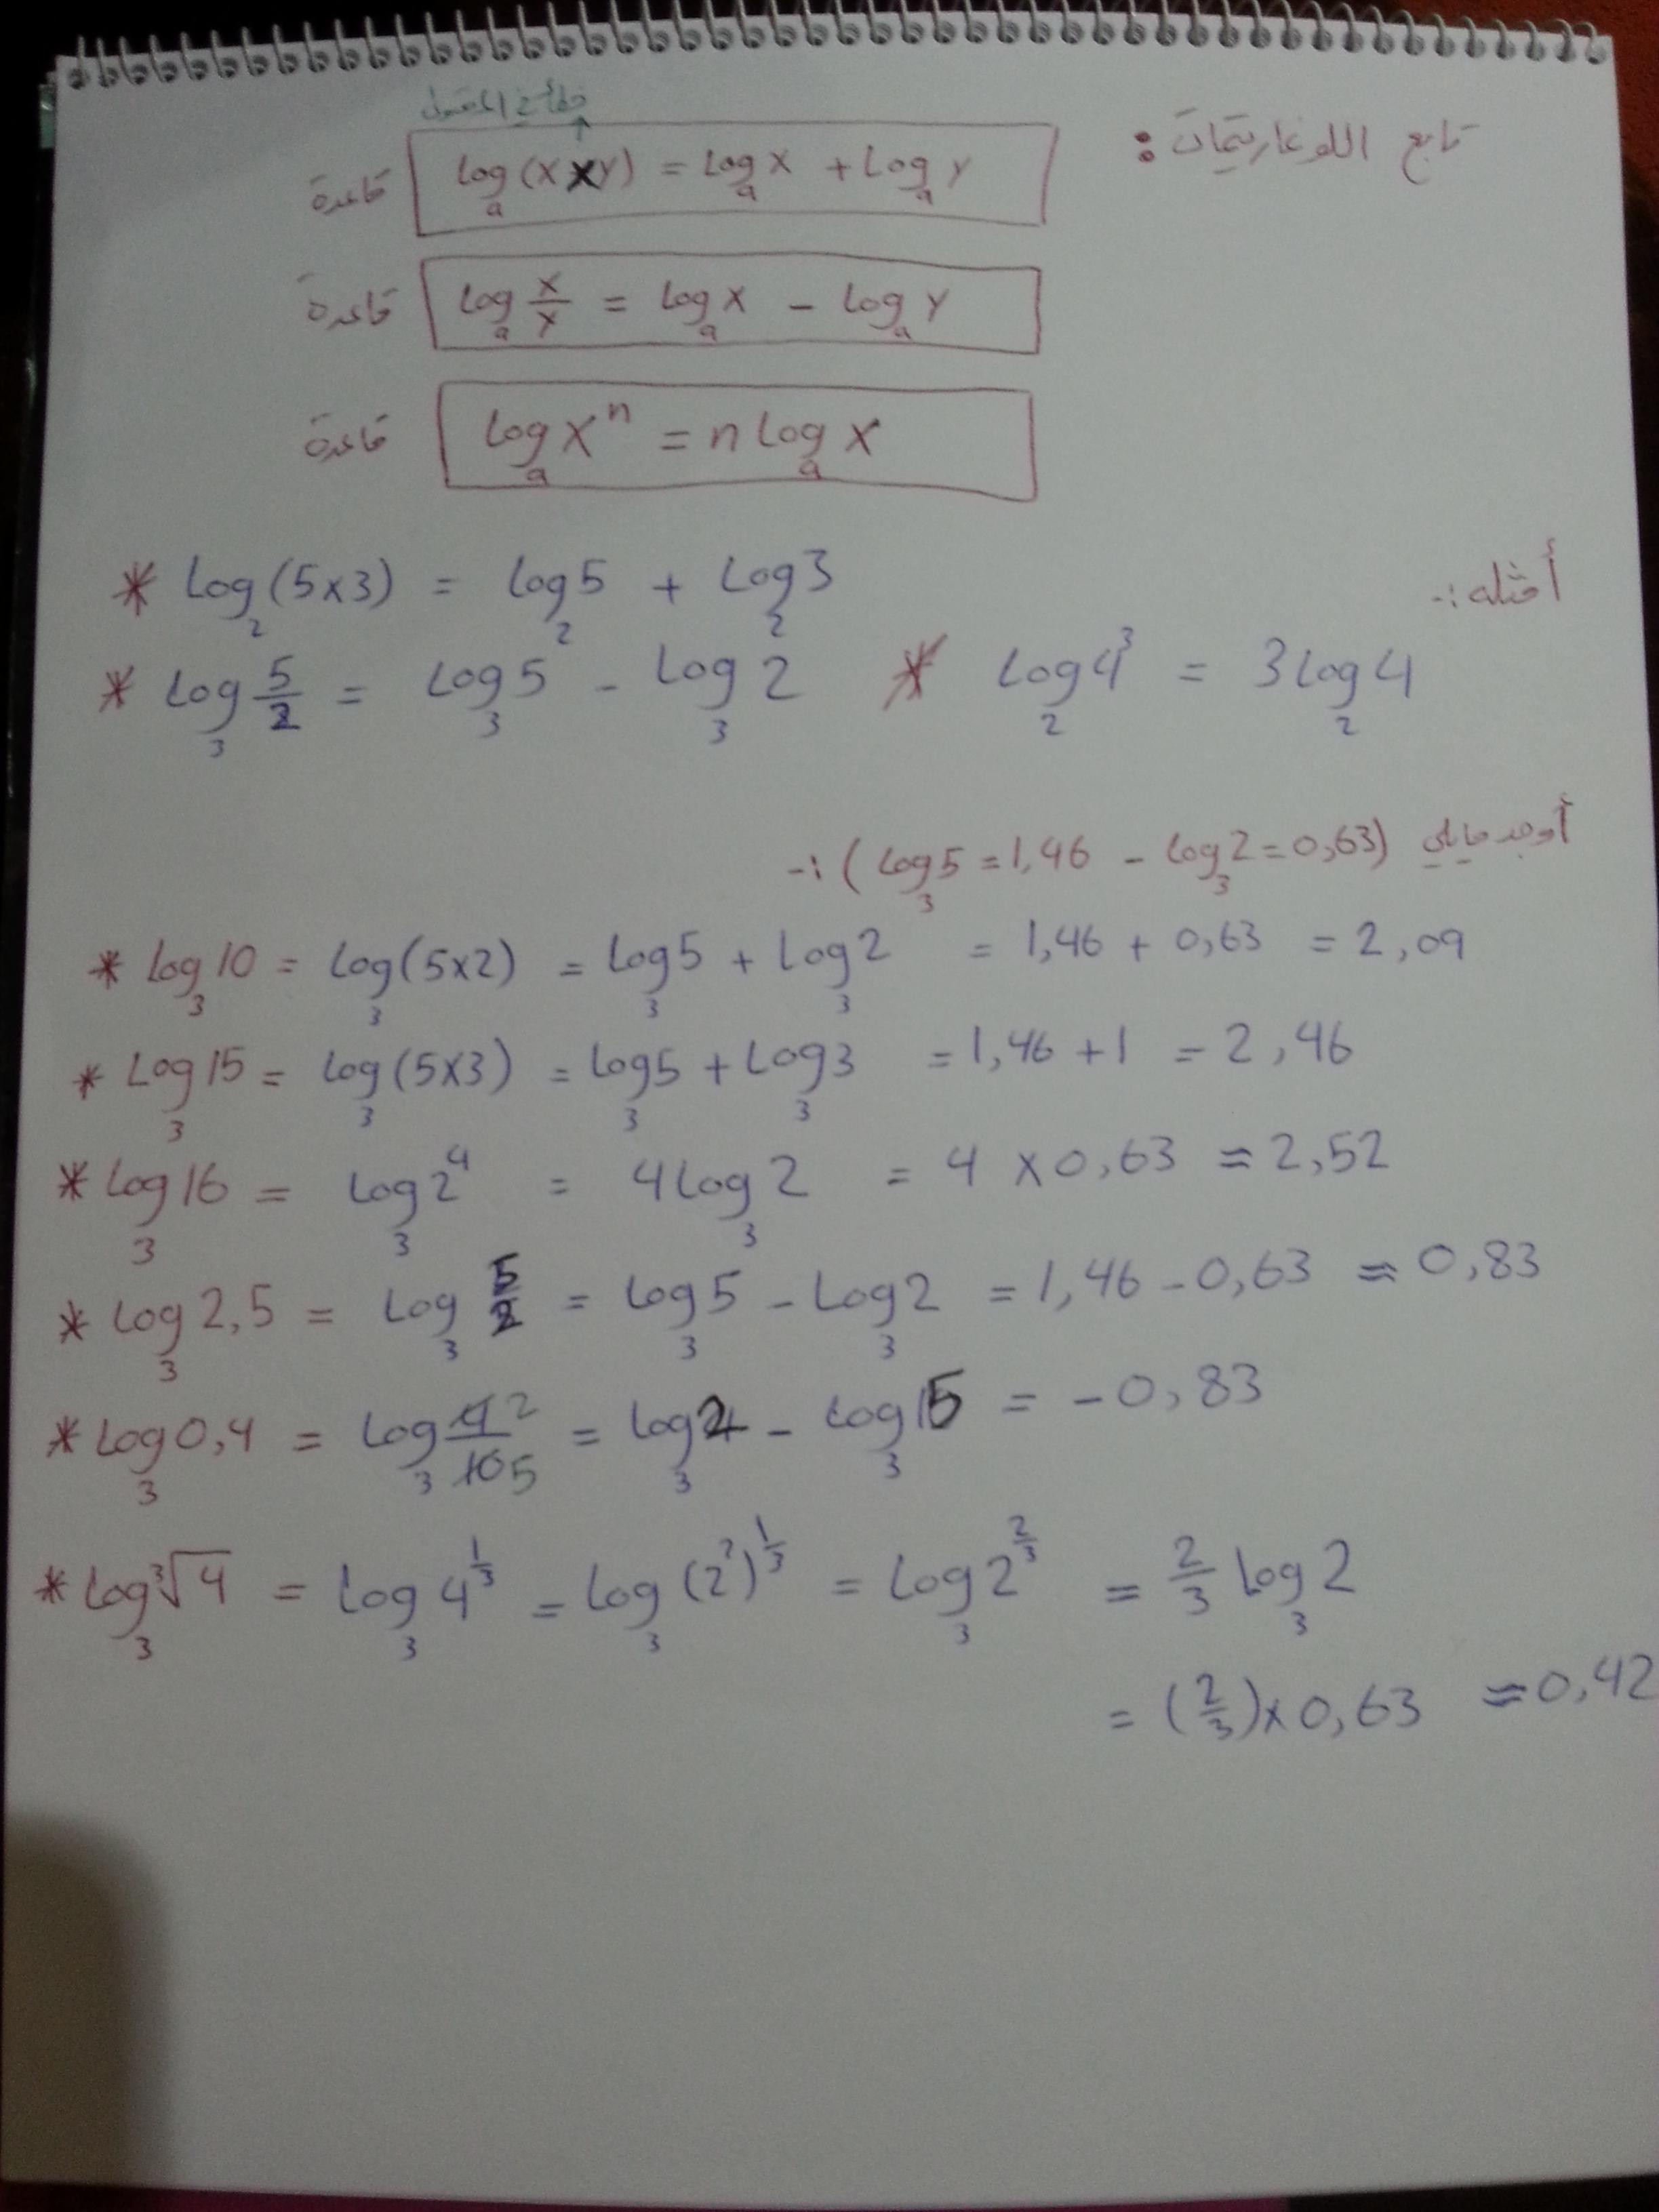 تابع اللوغاريتمات :
قاعدة log_a (X × Y) = Log_a X + Log_a Y
قاعدة log_a X/Y = log_a X - log_a Y
قاعدة log_a X^n = n log_a X
أمثله :-
* log_2 (5×3) = log_2 5 + log_2 3
* log_3 5/2 = log_3 5 - log_3 2 * log_2 4^3 = 3 log_2 4
أوجد مايلي (log_3 5 = 1,46 - log_3 2 = 0,63) :-
* log_3 10 = log_3 (5×2) = log_3 5 + log_3 2 = 1,46 + 0,63 = 2,09
* Log_3 15 = log_3 (5×3) = log_3 5 + Log_3 3 = 1,46 + 1 = 2,46
* log_3 16 = log_3 2^4 = 4 log_3 2 = 4 × 0,63 ≈ 2,52
* log_3 2,5 = log_3 5/2 = log_3 5 - Log_3 2 = 1,46 - 0,63 ≈ 0,83
* log_3 0,4 = log_3 2/5 = log_3 2 - log_3 5 = - 0,83
* log_3 ³√4 = log_3 4^(1/3) = log_3 (2^2)^(1/3) = log_3 2^(2/3) = 2/3 log_3 2
= (2/3) × 0,63 ≈ 0,42